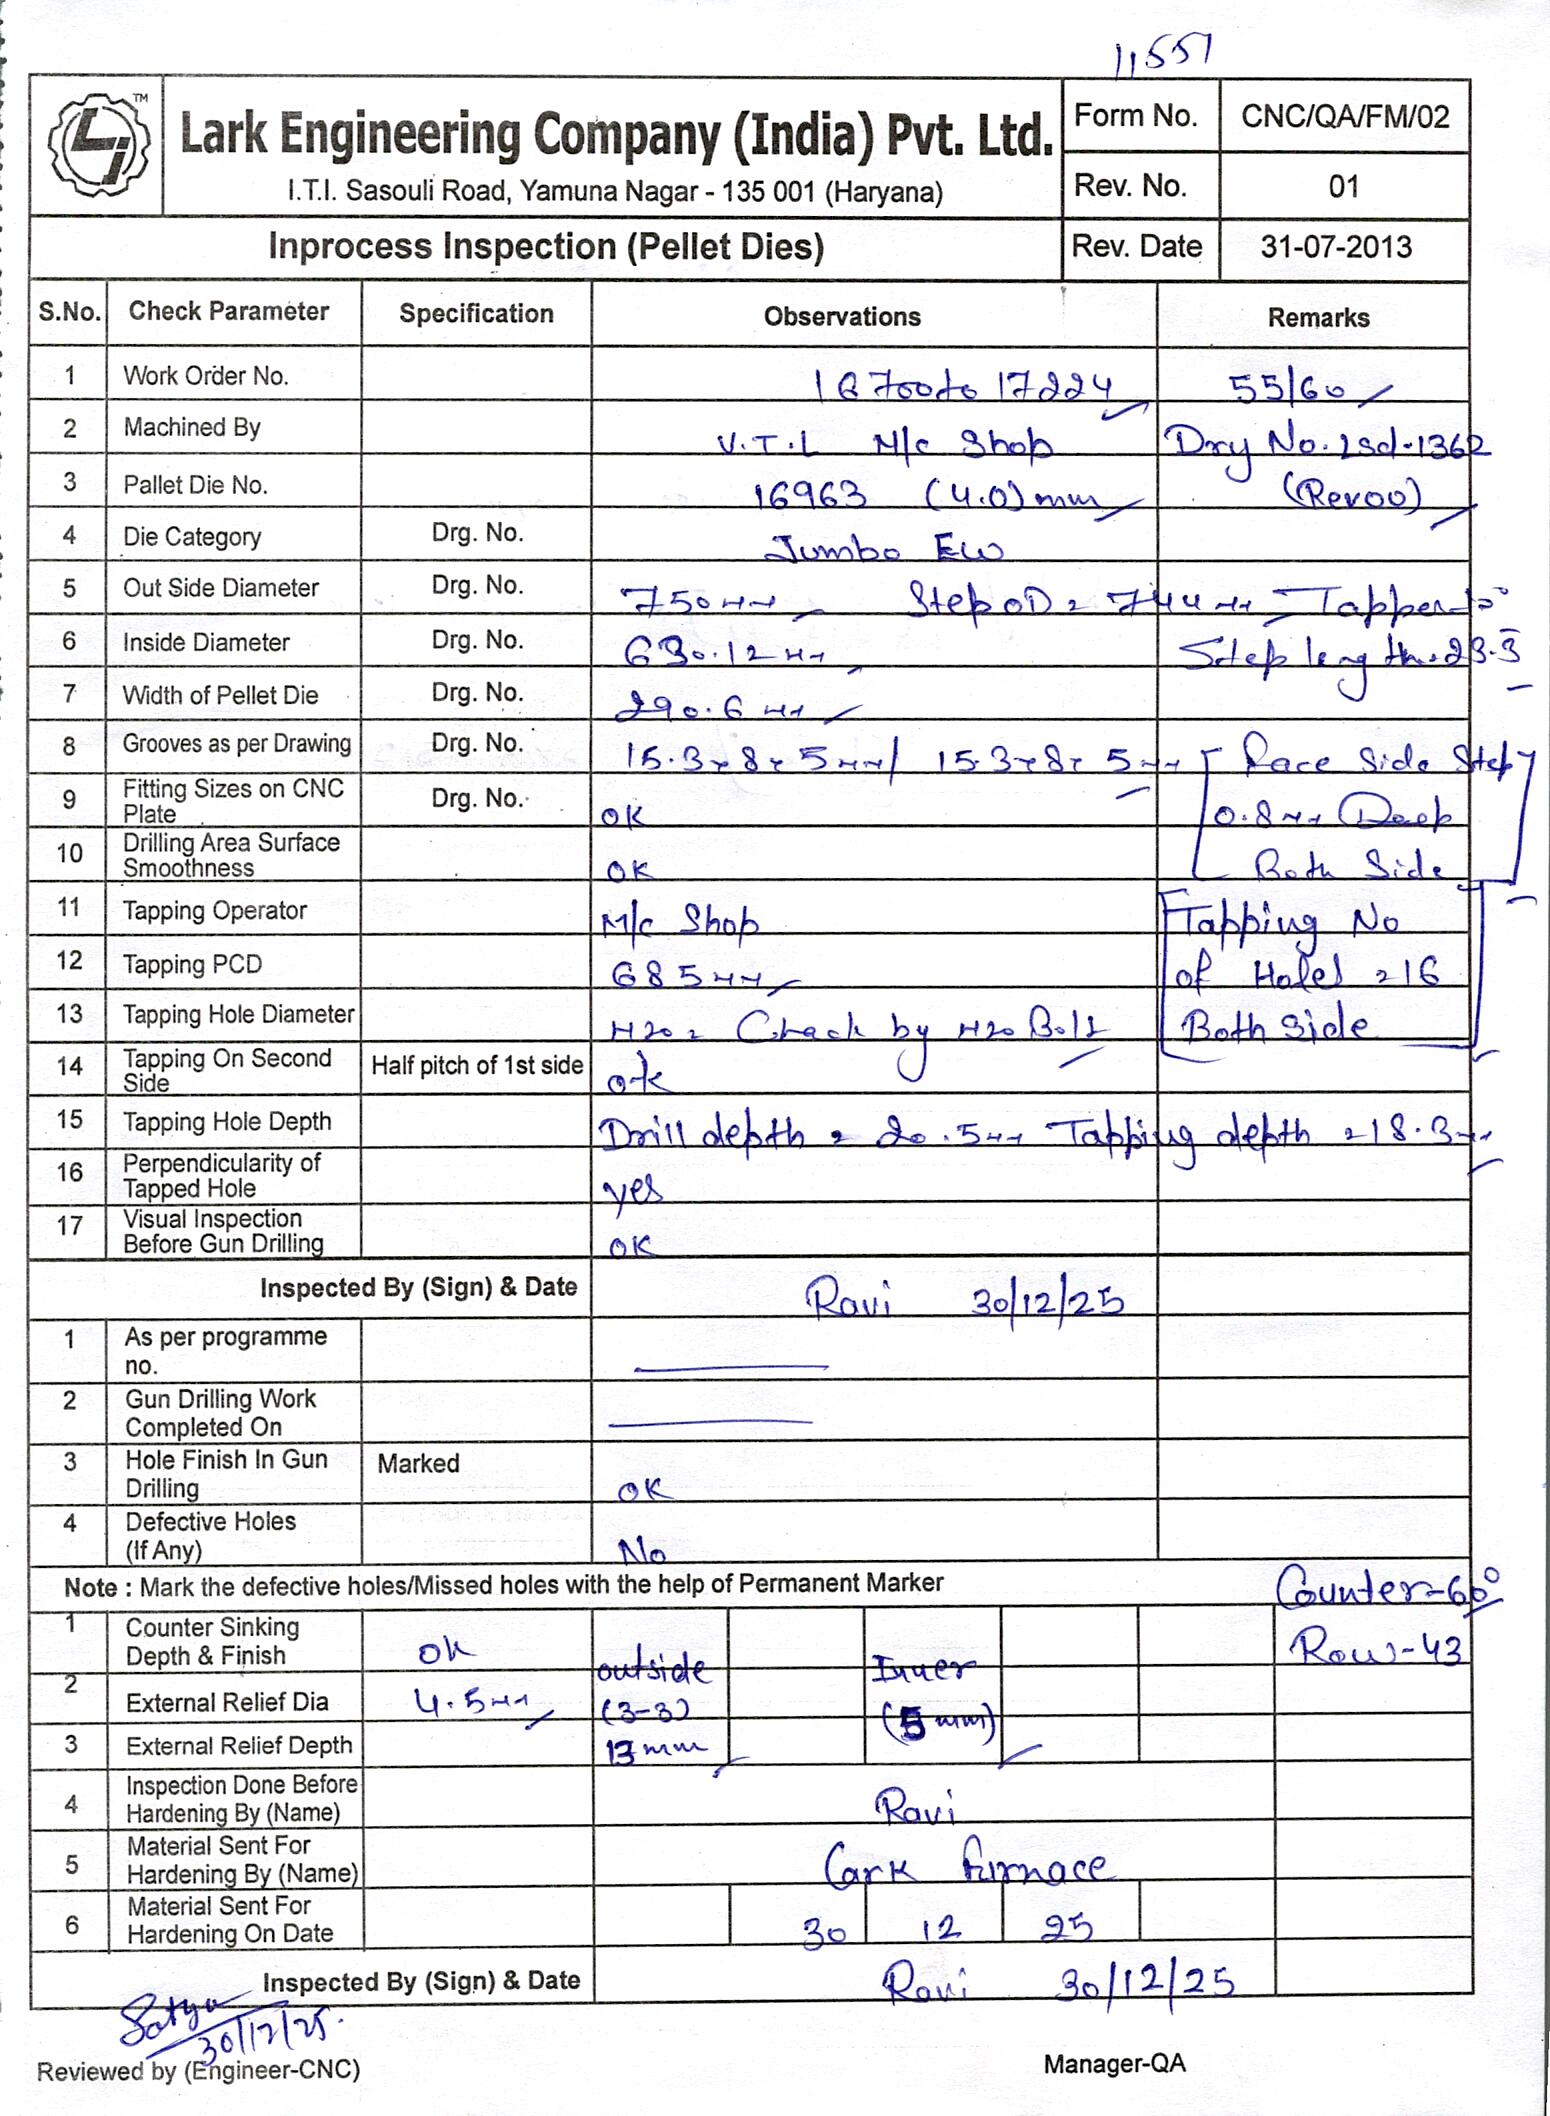 11551
TM
Lark Engineering Company (India) Pvt. Ltd.
I.T.I. Sasouli Road, Yamuna Nagar - 135 001 (Haryana)
Form No. CNC/QA/FM/02
Rev. No. 01
Inprocess Inspection (Pellet Dies) Rev. Date 31-07-2013
S.No. Check Parameter Specification Observations Remarks
1 Work Order No. 16700to 17224 55/60
2 Machined By V.T.L M/c Shop Dry No. Lsd-1362
3 Pallet Die No. 16963 (4.0) mm (Rev00)
4 Die Category Drg. No. Jumbo EW
5 Out Side Diameter Drg. No. 750mm Step OD = 744mm Tapper
6 Inside Diameter Drg. No. 630.12mm Step length = 23.3
7 Width of Pellet Die Drg. No. 290.6mm
8 Grooves as per Drawing Drg. No. 15.3x8x5mm/ 15.3x8x5mm [Race Side Step]
9 Fitting Sizes on CNC Plate Drg. No. OK 0.8mm Deep
10 Drilling Area Surface Smoothness OK Both Side
11 Tapping Operator M/c Shop Tapping No
12 Tapping PCD 685mm of Holes = 16
13 Tapping Hole Diameter M20 = Chack by M20 Bolt Both Side
14 Tapping On Second Side Half pitch of 1st side ok
15 Tapping Hole Depth Drill depth = 20.5mm Tapping depth = 18.3mm
16 Perpendicularity of Tapped Hole yes
17 Visual Inspection Before Gun Drilling OK
Inspected By (Sign) & Date Ravi 30/12/25
1 As per programme no.
2 Gun Drilling Work Completed On
3 Hole Finish In Gun Drilling Marked OK
4 Defective Holes (If Any) No
Note : Mark the defective holes/Missed holes with the help of Permanent Marker Counter-60°
1 Counter Sinking Depth & Finish ok outside Inner Row-43
2 External Relief Dia 4.5mm (3-3) (5mm)
3 External Relief Depth 13mm
4 Inspection Done Before Hardening By (Name) Ravi
5 Material Sent For Hardening By (Name) Lark Furnace
6 Material Sent For Hardening On Date 30 12 25
Inspected By (Sign) & Date Ravi 30/12/25
Satya
30/12/25.
Reviewed by (Engineer-CNC) Manager-QA